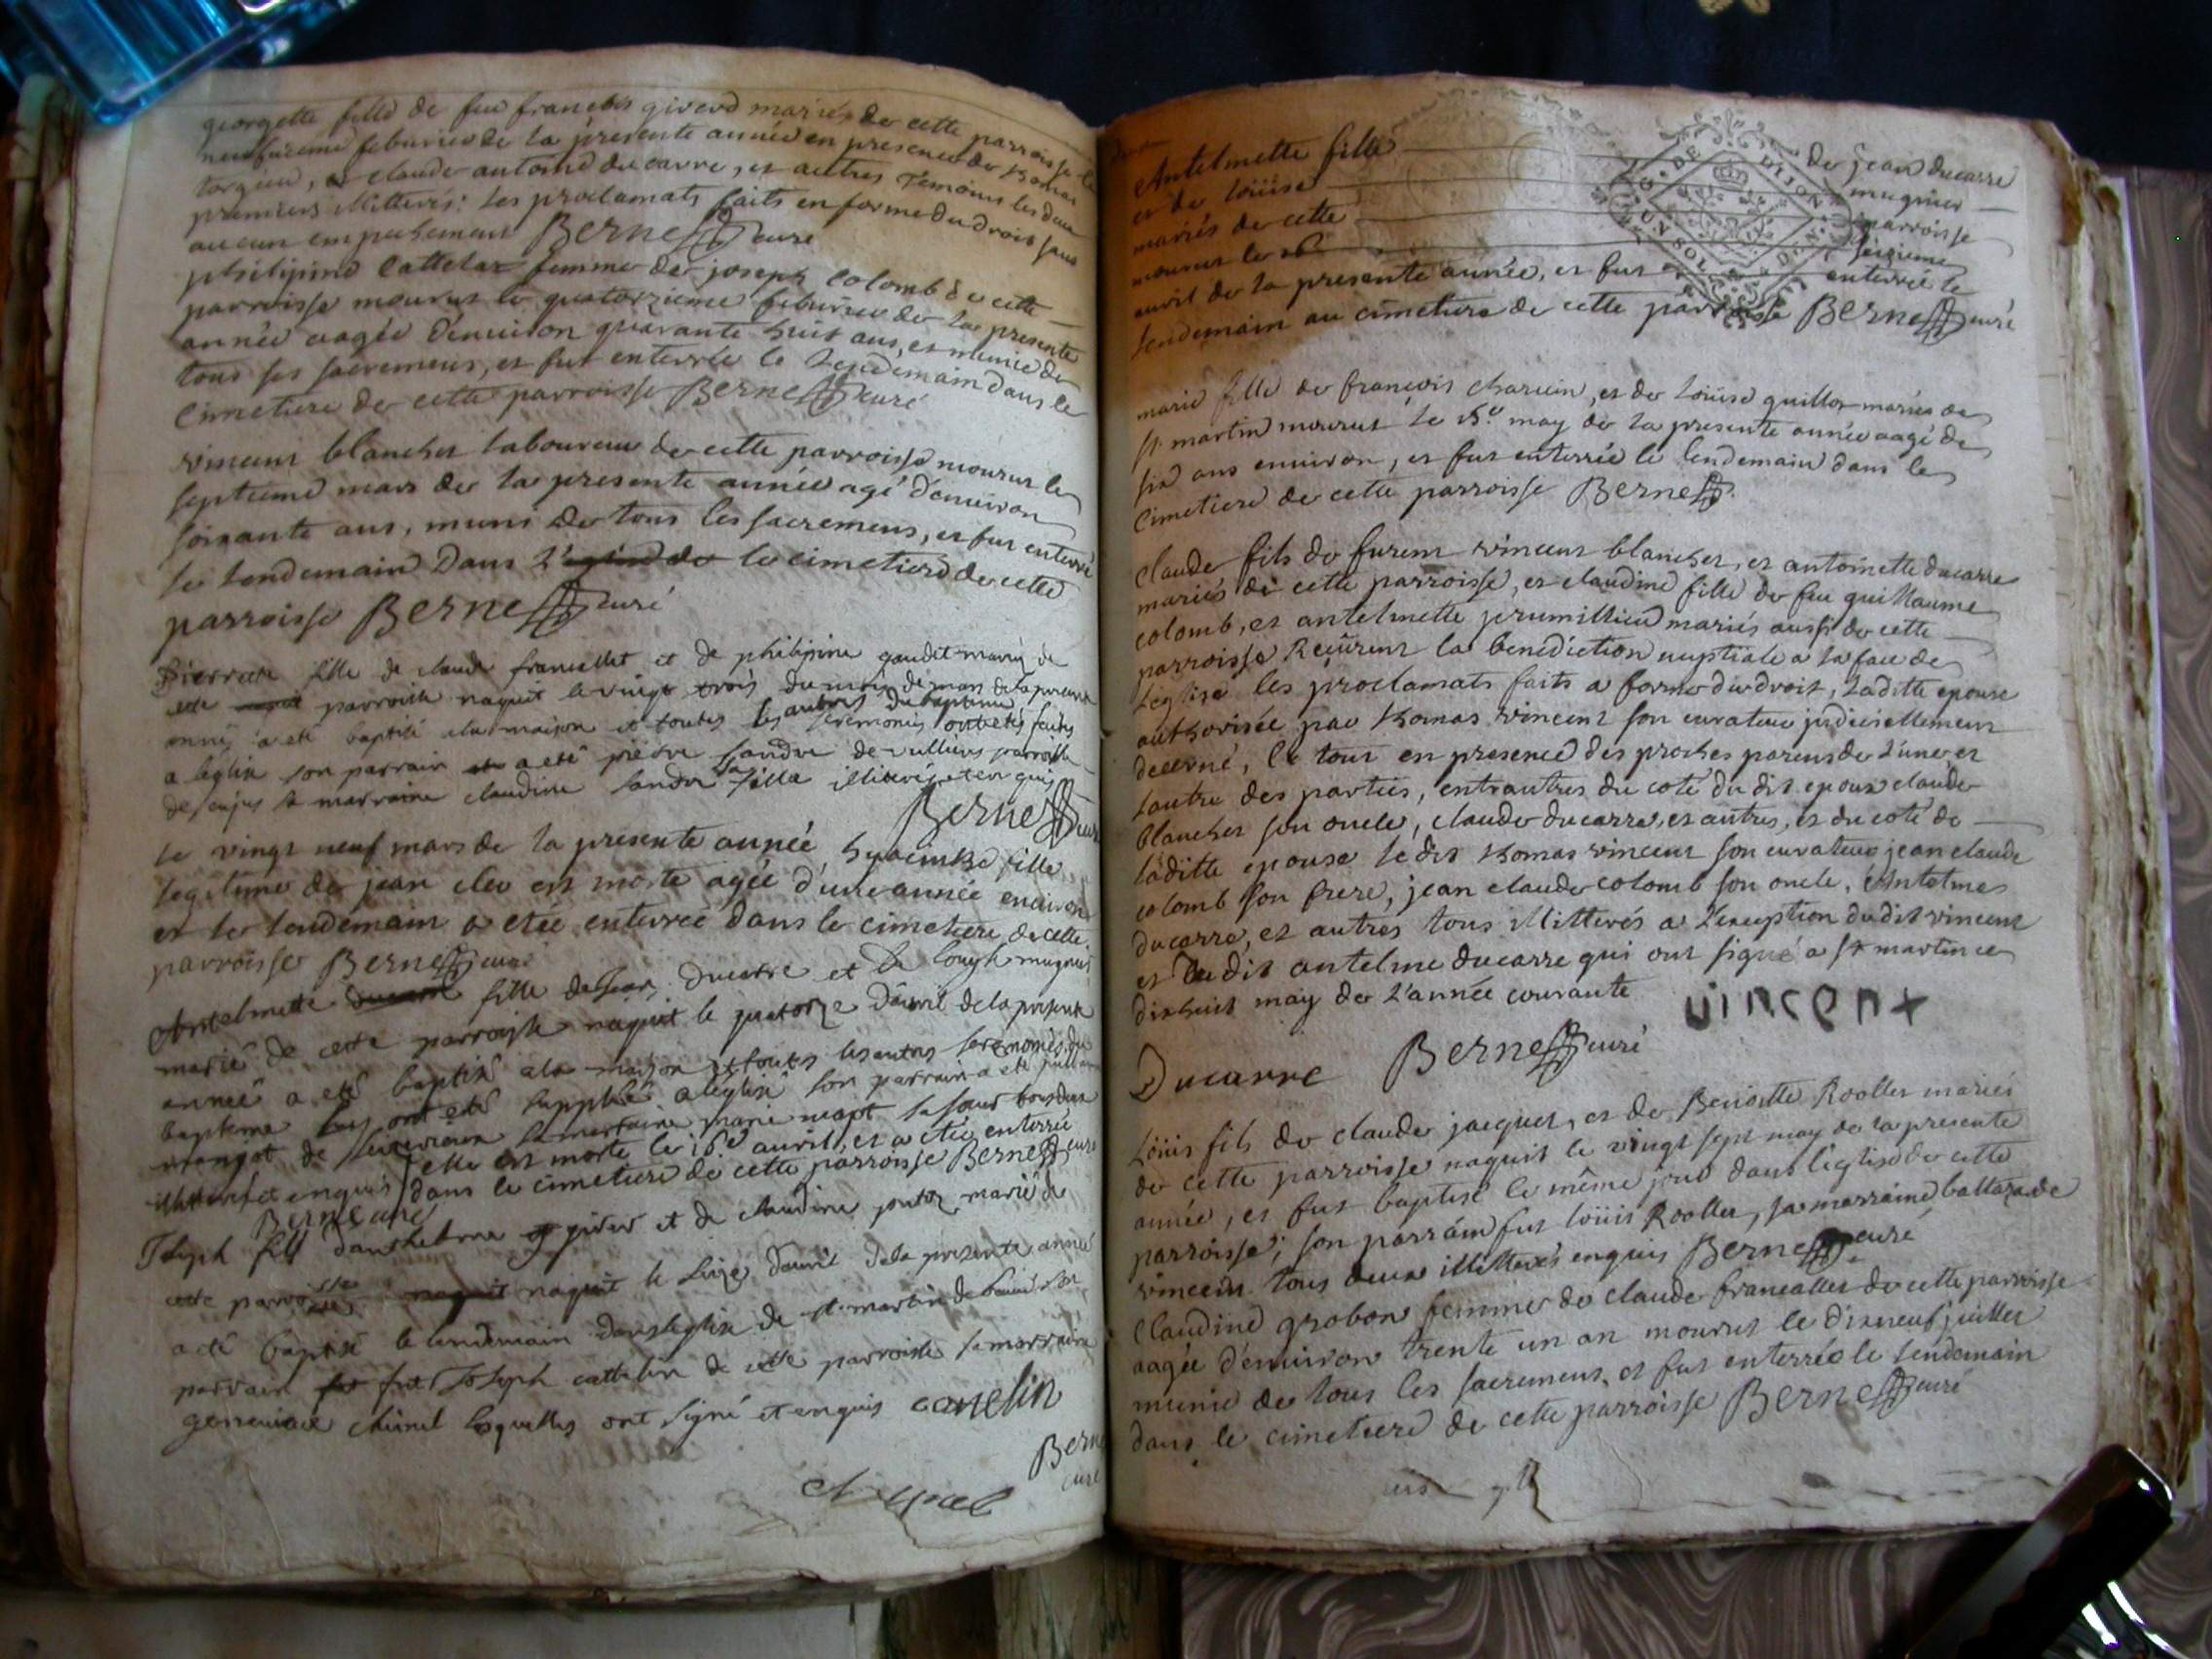 georgette fille de feu francois giverd mariés de cette parroisse le
neufvieme febvrier de la presente année en presence de thomas
torgieu, et claude antoine ducarre, et autres temoins les deux
premiers illitterés: les proclamats faits en forme du droit sans
aucun empechement Berne curé
philipine Cattelax femme de joseph Colomb de cette
parroisse mourut le quatorzieme febvrier de la presente
année aagée d'environ quarante huit ans, et munie de
tous ses sacremens, et fut enterrée le lendemain dans le
Cimetiere de cette parroisse Berne curé
vincent blanchet laboureur de cette parroisse mourut le
septieme mars de la presente année agé d'environ
soixante ans, muni de tous les sacremens, et fut enterré
le lendemain Dans l'eglise de le cimetiere de cette
parroisse Berne curé
Pierrette fille de claude francillet et de philipine gaudet mariés de
cette parroisse naquit le vingt trois du mois de mars de la presente
année a eté baptisé a la maison et toutes les autres ceremonies du baptême ont etés faites
a leglise son parrain a eté pierre landre de vullieus parroisse
sa marraine claudine landre sa fille illiterés et enquis
Berne curé
le vingt neuf mars de la presente année hyacinthe fille
legitime de jean est morte agée d'une année environ
et le lendemain a etée enterrée dans le cimetiere de cette
parroisse Berne curé
Antelmette ducarre fille de Jean Ducarre et de mugnier
marié de cette parroisse naquit le quatorze d'avril de la presente
année a eté baptisé a la maison et toutes les autres ceremonies du
bapteme ont eté supplée a leglise son parrain a eté
de sa marraine marie
illiteré et enquis elle est morte le 16e avril, et a etée enterrée
dans le cimetiere de cette parroisse Berne curé
Berne curé
Joseph fils et de claudine mariés de
cette parroisse naquit le d'avril de la presente année
a eté baptisé le lendemain dans leglise de st martin de son
parrain fut Joseph cattelin de cette parroisse sa marraine
lesquelles ont signé et enquis catelin
Berne
curé
Antelmette fille de jean ducarre
et de loüise mugnier
mariés de cette parroisse
mourut le seizieme
avril de la presente année, et fut enterrée le
lendemain au cimetiere de cette parroisse Berne curé
G. DE DIJON
UN SOL
marie fille de françois charvin, et de loüise guillot mariés de
st martin mourut le 15e may de la presente année aagé de
six ans environ, et fut enterrée le lendemain dans le
Cimetiere de cette parroisse Berne
Claude fils de furent vincent blanchet, et antoinette ducarre
mariés de cette parroisse, et claudine fille de feu guillaume
colomb, et antelmette jerumillieu mariés aussi de cette
parroisse Reçurent la benediction nuptiale a la face de
L'eglise les proclamats faits a forme du droit, laditte epouse
authorisée par thomas vincent son curateur judiciellement
decerné, le tout en presence des proches parens de l'une et
lautre des parties, entrautres du coté du dit epoux claude
Blanchet son oncle, claude ducarre, et autres, et du coté de
laditte epouse le dit thomas vincent son curateur jean claude
colomb son frere, jean claude colomb son oncle, Antelme
ducarre, et autres tous illitterés a l'exeption du dit vincent
et du dit antelme ducarre qui ont signé a st martin ce
dixhuit may de l'année courante vincent
Ducarre Berne curé
Loüis fils de claude jacquet, et de Benoitte Rollet mariés
de cette parroisse naquit le vingt sept may de la presente
année, et fut baptisé le même jour dans l'eglise de cette
parroisse; son parrain fut loüis Rollet, sa marraine baltazarde
vincent tous deux illitterés enquis Berne curé
Claudine grobon femme de claude francallet de cette parroisse
aagée d'environ trente un an mourut le dixneuf juillet
munie de tous les sacremens, et fut enterrée le lendemain
dans le cimetiere de cette parroisse Berne curé